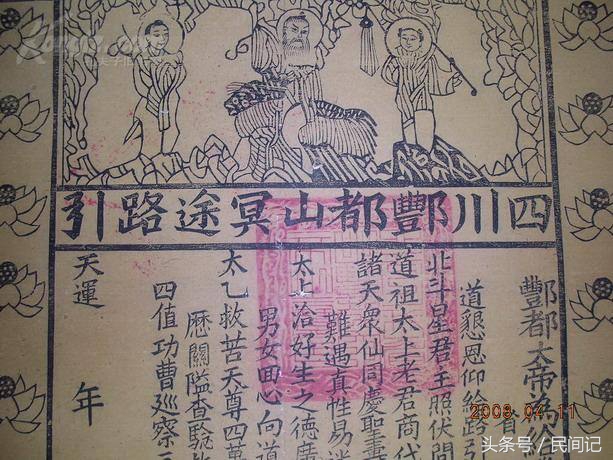 四川酆都山冥途路引
酆都大帝為給
省
道懇恩仰給路引
北斗星君主照伏聞
道祖太上老君商代
諸天眾仙同慶聖
難遇真性易迷
太上洽好生之德廣
男女回心向道
太乙救苦天尊四萬
歷關隘查驗
四值功曹巡察三
天運 年
2008.04.11
头条号／民间记